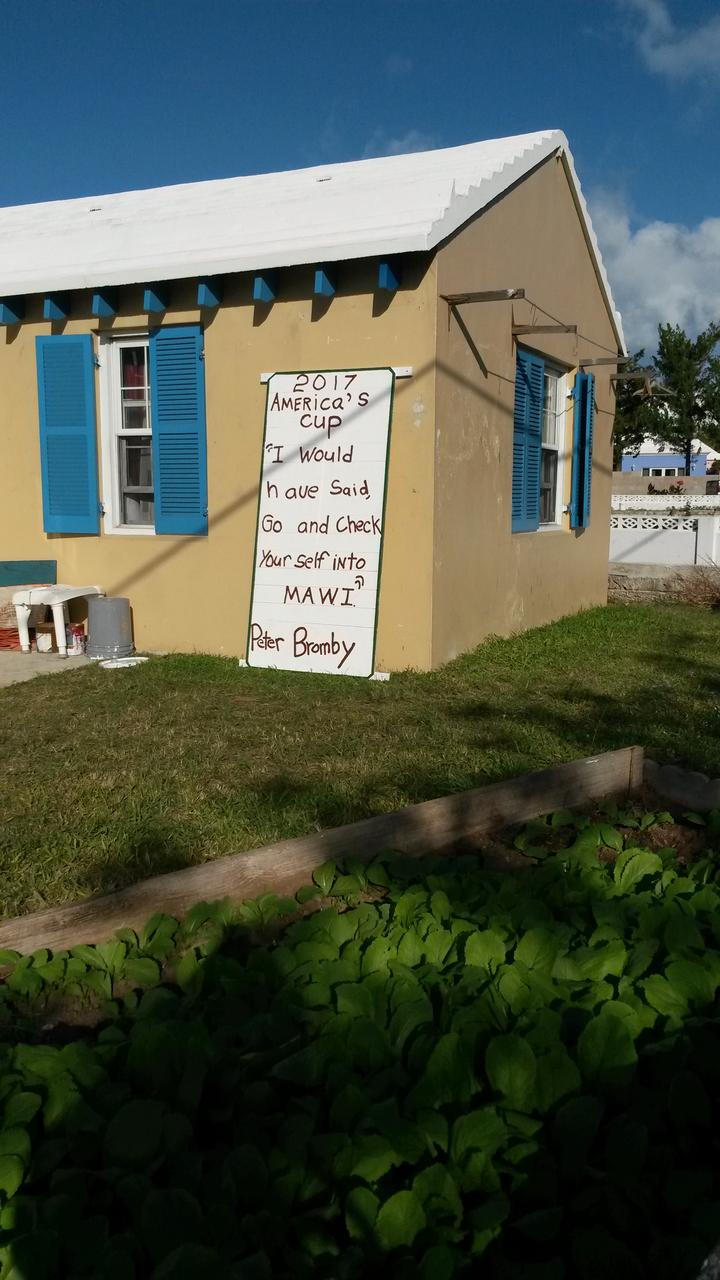 2017
AMERICA'S
CUP
"I Would
have Said,
Go and Check
Your self into
M.A.W.I."
Peter Bromby